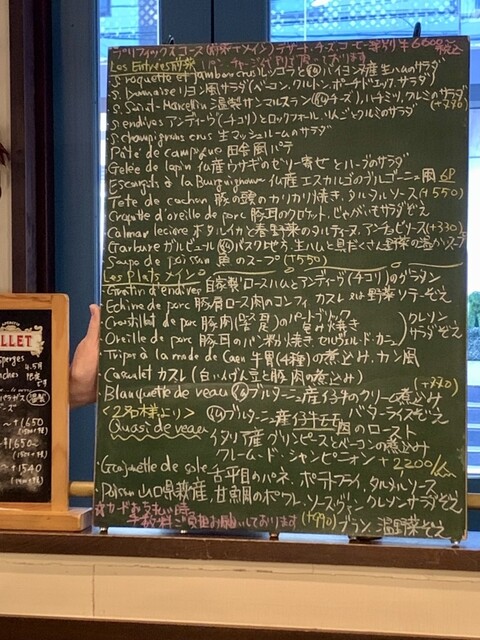 プリフィックスコース(前菜+メイン) デザート・チーズ、コーヒー 別 ¥6000 税込
Les Entrées 前菜 パン、チャージ代別で頂いております
S. roquette et jambon cru ルッコラと仏バイヨンヌ産生ハムのサラダ
S. Lyonnaise リヨン風サラダ (ベーコン、クルトン、ポーチドエッグ、サラダ)
S. Saint-Marcellin 温製サンマルスラン(仏チーズ)、ハチミツ、クルミのサラダ (+770)
S. endives アンディーヴ(チコリ)とロックフォール、りんごとクルミのサラダ
S. champignons crus 生マッシュルームのサラダ
Pâté de campagne 田舎風パテ
Gelée de lapin 仏産ウサギのゼリー寄せとハーブのサラダ
Escargots à la Bourguignonne 仏産エスカルゴのブルゴーニュ風 6P
Tête de cochon 豚の頭のカリカリ焼き、タルタルソース (+550)
Croquette d'oreille de porc 豚耳のクロケット、じゃがいもサラダぞえ
Calmar ホタルイカと春野菜のタルティーヌ、アンチョビソース (+330)
Garbure ガルビュール 仏バスク地方、生ハムと具だくさん野菜の温かいスープ
Soupe de poisson 魚のスープ (+550)
Les Plats メイン
Gratin d'endives 自家製ロースハムとアンディーヴ(チコリ)のグラタン
Echine de porc 豚肩ロース肉のコンフィ 野菜ソテーぞえ
Croustillant de porc 豚肉 のパートブリック 包み焼き クレソン サラダぞえ
Oreille de porc 豚耳のパン粉焼き、セルヴェル・ド・カニュ
Tripes à la mode de Caen 牛胃(4種)の煮込み、カン風
Cassoulet カスレ (白いんげん豆と豚肉の煮込み)
Blanquette de veau 仏ブルターニュ産仔牛のクリーム煮込み (+770)
<2名様より> 仏ブルターニュ産仔牛モモ肉のロースト バターライスぞえ
Quasi de veau イタリア産プリンピースとベーコンの煮込み
クレーム・ド・シャンピニオン +2200/人
Goujonnette de sole 舌平目のパネ、ポテトフライ、タルタルソース
Poisson 山口県萩産、甘鯛のポワレ、ソース・ヴァン・ブラン、温野菜ぞえ (+990) クレソンサラダぞえ
☆カードお支払い時 手数料ご負担お願いしております
LLET
asperges
~¥1650
¥1650~
~¥1540